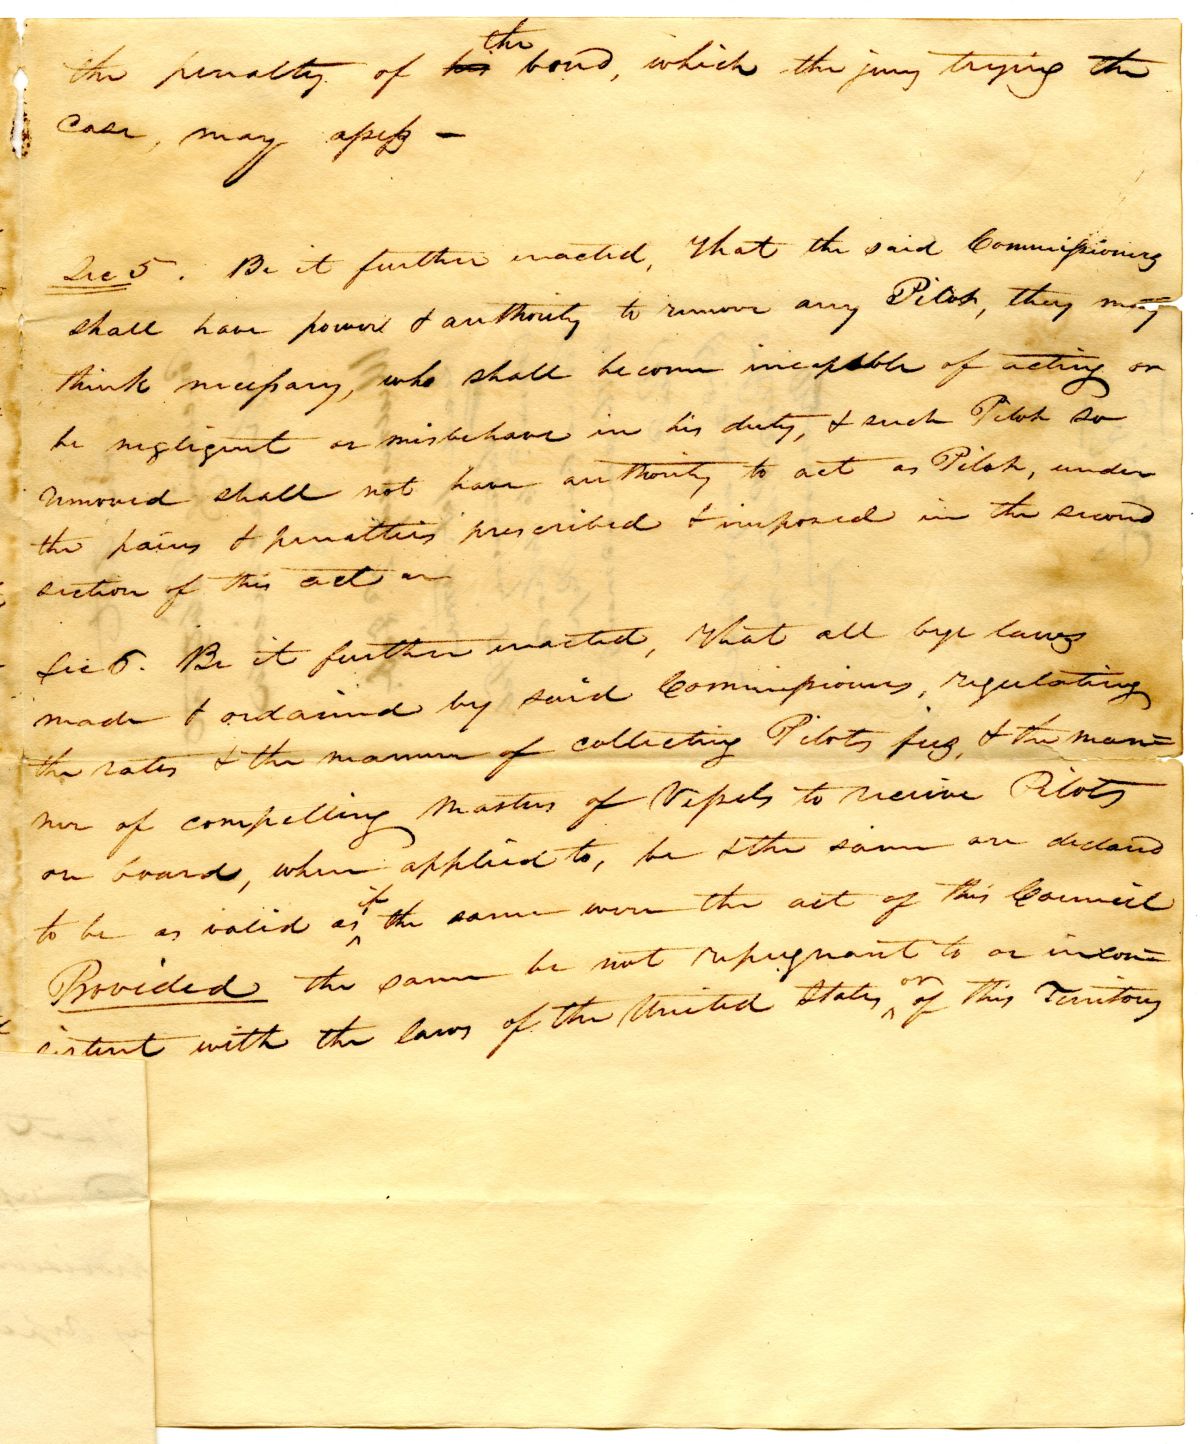 the penalty of ~~his~~ the bond, which the jury trying the
case, may assess —
Sec 5. Be it further enacted, That the said Commissioners
shall have power & authority to remove any Pilot, they may
think necessary, who shall become incapable of acting or
be negligent or misbehave in his duty, & such Pilot so
removed shall not have authority to act as Pilot, under
the pains & penalties prescribed & imposed in the second
section of this act
Sec 6. Be it further enacted, That all bye laws
made & ordained by said Commissioners, regulating
the rates & the manner of collecting Pilots fees, & the man=
ner of compelling Masters of Vessels to receive Pilots
on board, when applied to, be & the same are declared
to be as valid as if the same were the act of this Council
Provided the same be not repugnant to or incon=
sistent with the laws of the United States, or of this Territory